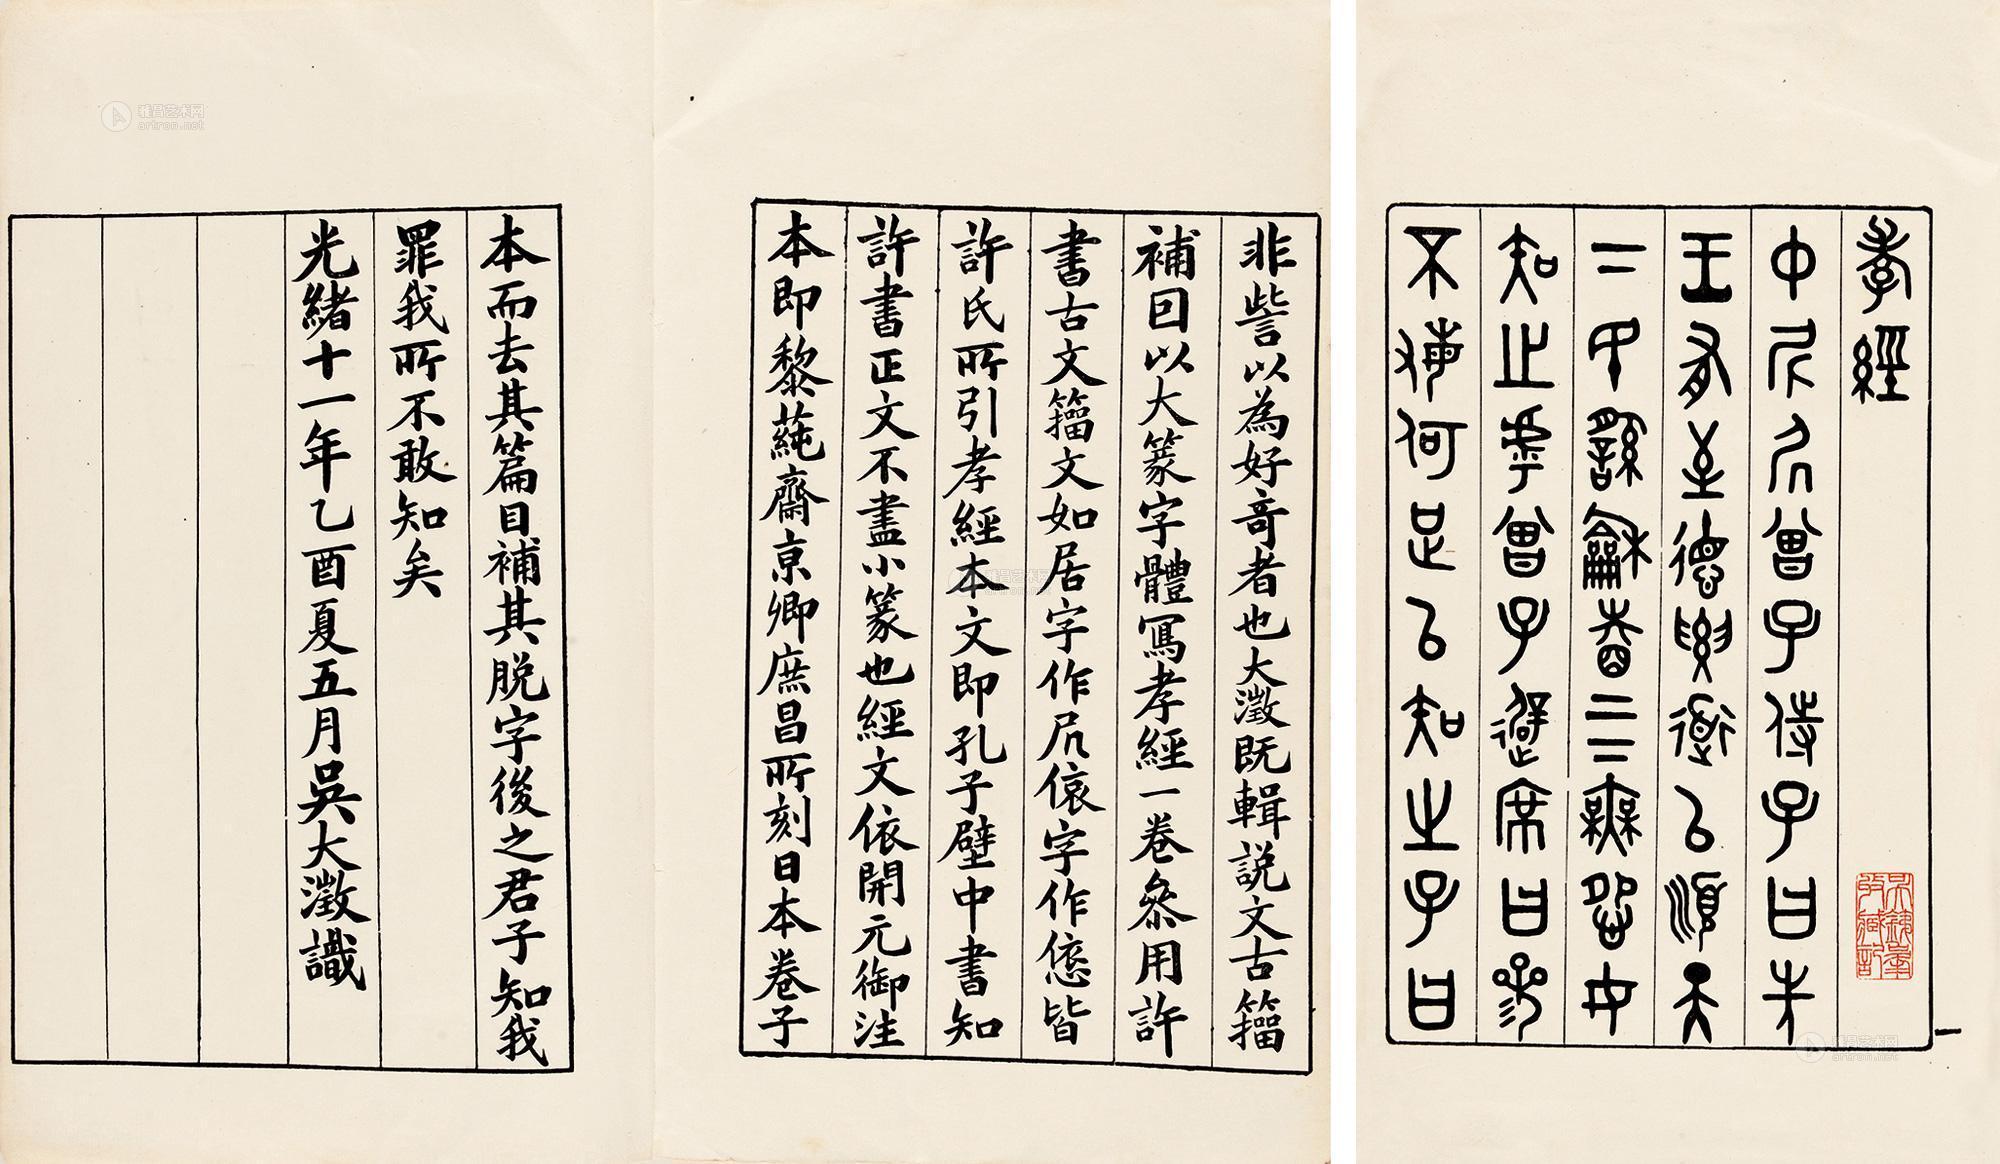 孝經
中尼凥曾子侍子曰先
王有至德要道以順天
下民繇龢睦上下無怨女
知之乎曾子避席曰參
不敏何足以知之子曰
一
非訾以為好奇者也大澂既輯説文古籀
補囙以大篆字體寫孝經一卷叅用許
書古文籀文如居字作凥偯字作㥋皆
許氏所引孝經本文即孔子壁中書知
許書正文不盡小篆也經文依開元御注
本即黎蒓齋京卿庶昌所刻日本卷子
本而去其篇目補其脱字後之君子知我
罪我所不敢知矣
光緒十一年乙酉夏五月吳大澂識
雅昌艺术网
artron.net